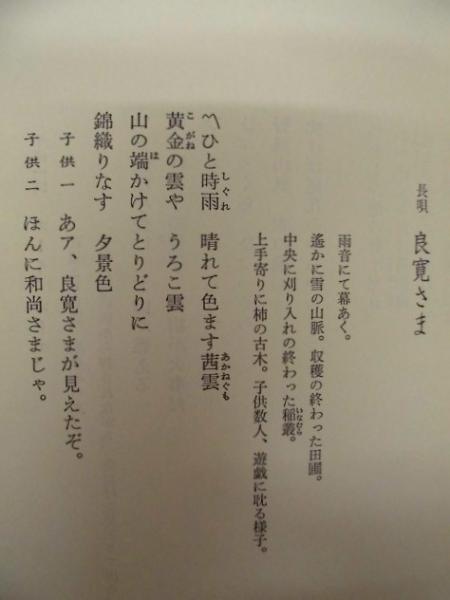 長唄 良寛さま
雨音にて幕あく。
遙かに雪の山脈。収穫の終わった田圃。
中央に刈り入れの終わった稲叢。
いなむら
上手寄りに柿の古木。子供数人、遊戯に耽る様子。
〽ひと時雨 晴れて色ます茜雲
しぐれ あかねぐも
黄金の雲や うろこ雲
こがね
山の端かけてとりどりに
は
錦織りなす 夕景色
子供一 あア、良寛さまが見えたぞ。
子供二 ほんに和尚さまじゃ。